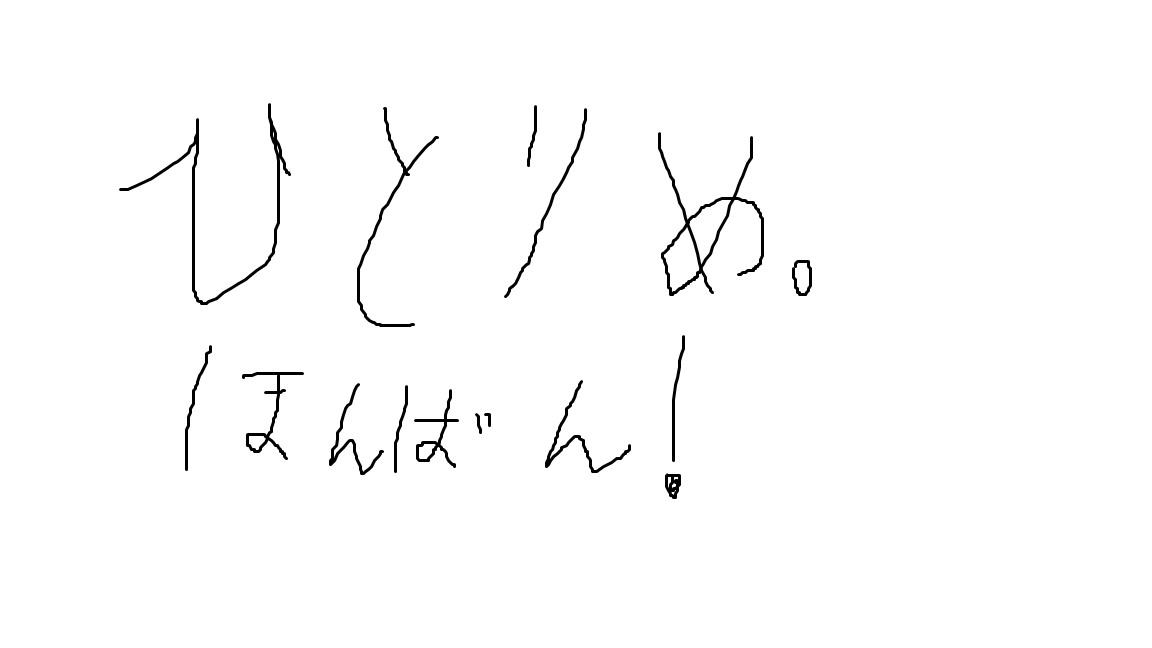 ひとりめ。
ほんばん!